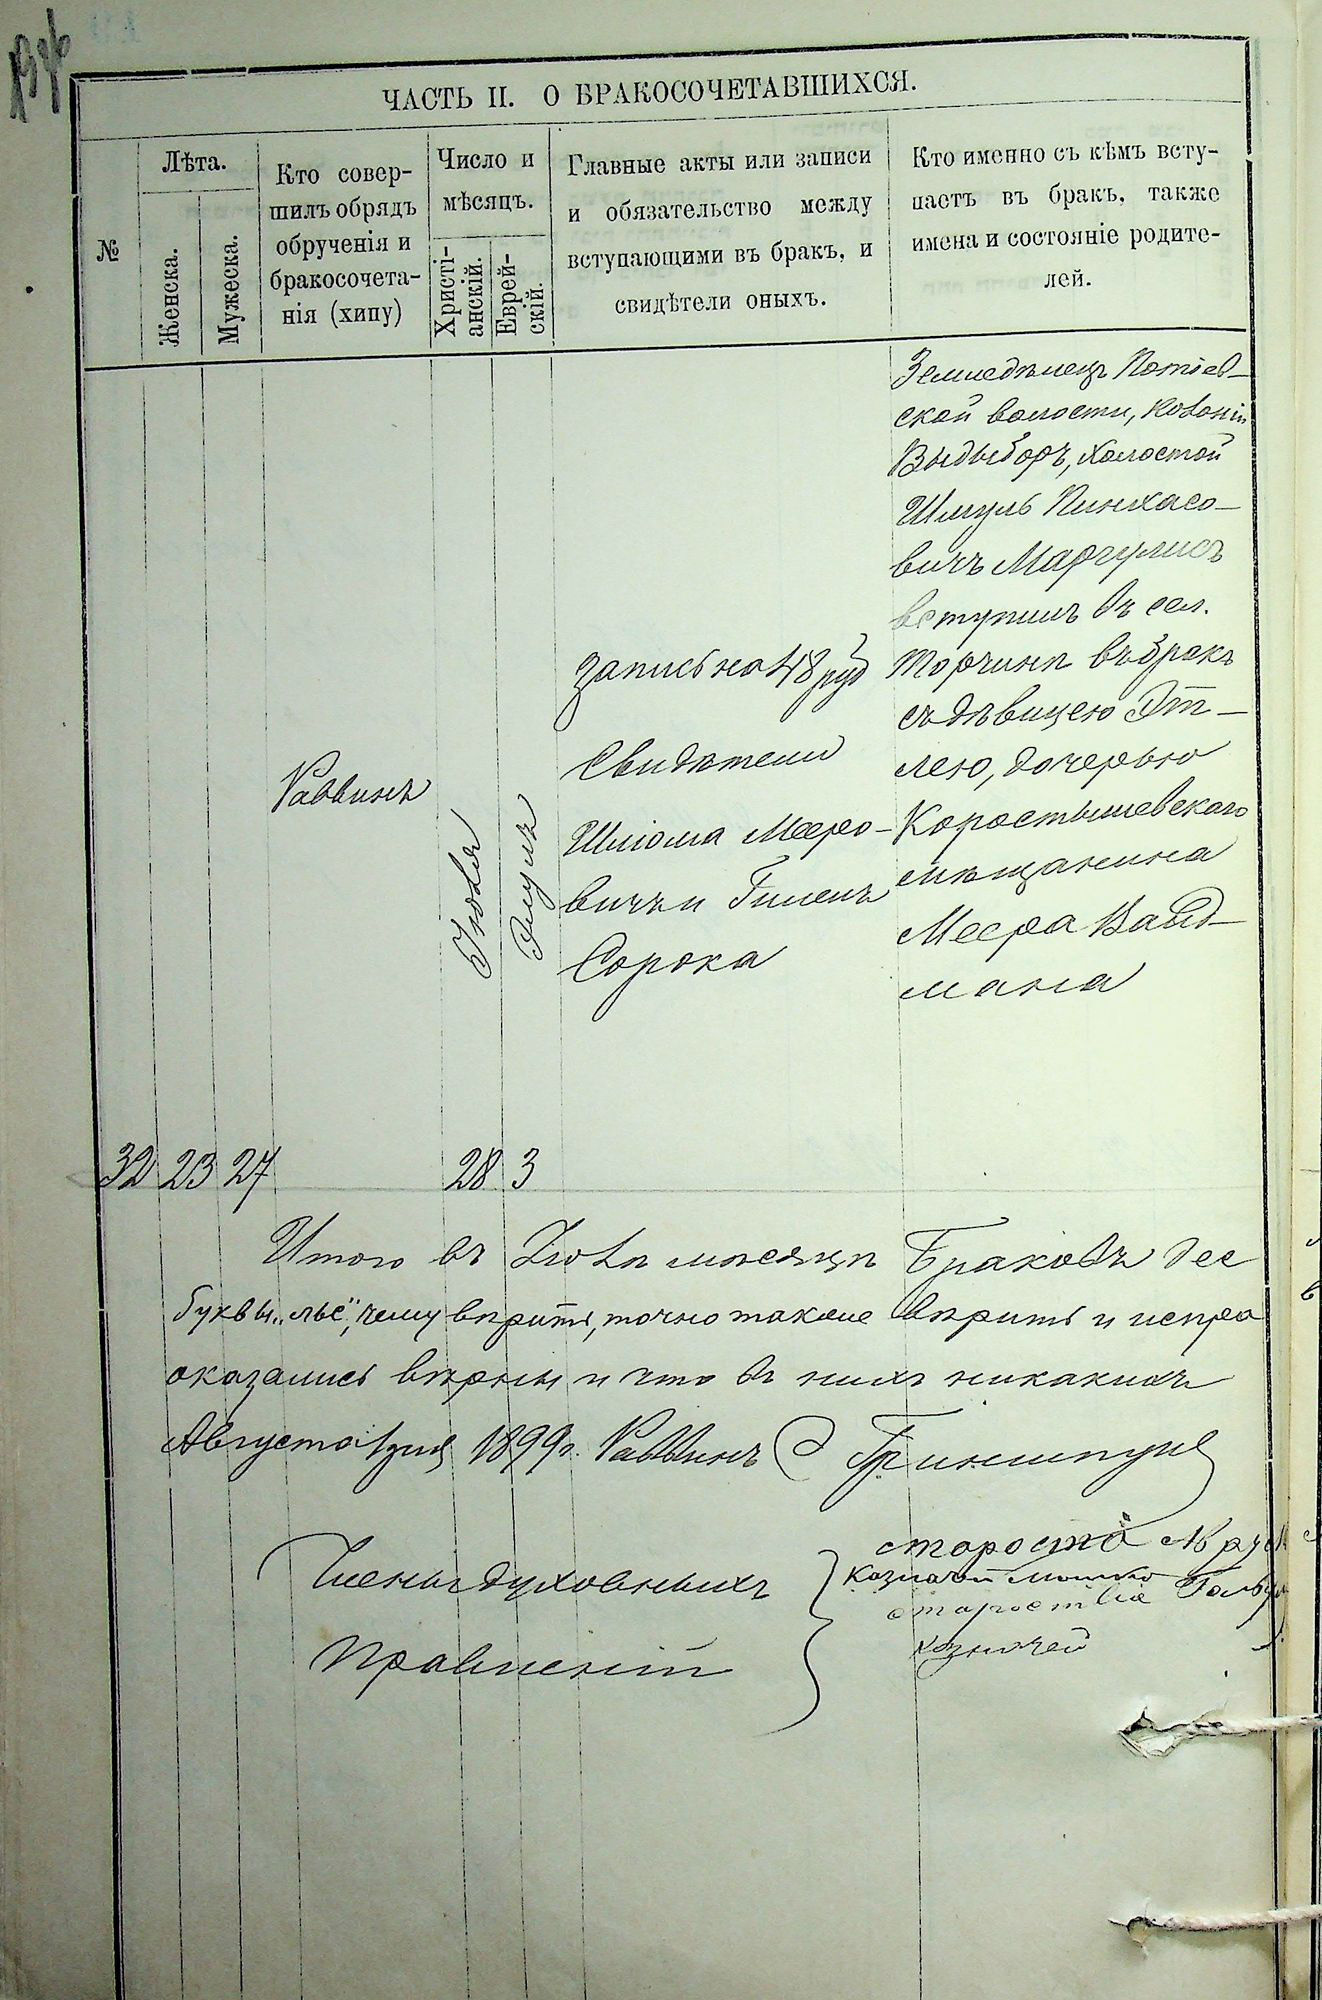 ЧАСТЬ II. О БРАКОСОЧЕТАВШИХСЯ.
№
Лѣта.
Женска.
Мужеска.
Кто совер-
шилъ обрядъ
обрученія и
бракосочета-
нія (хипу)
Число и
мѣсяцъ.
Христі-
анскій.
Еврей-
скій.
Главные акты или записи
и обязательство между
вступающими въ бракъ, и
свидѣтели оныхъ.
Кто именно съ кѣмъ всту-
паетъ въ бракъ, также
имена и состояніе родите-
лей.
32
23
27
Раввинъ
Іюля
28
Элулъ
3
Запись на 48 руб
Свидѣтели
Шлiома Мееро-
вичъ и Гилель
Сорока
Земледѣлецъ Потіев-
ской волости, колоніи
Выдыборъ, холостой
Шмуль Пинхасо-
вичъ Маргулисъ
вступилъ въ сел.
Торчинѣ въ бракъ
съ дѣвицею Эт-
лею, дочерью
Коростышевского
мѣщанина
Меера Вайд-
мана
Итого въ Іюлѣ мѣсяцѣ Браковъ дес
буквы „лье", чему вѣрить, точно также вѣрить и испра
оказались вѣрны и что въ нихъ никакихъ
Августа 1 дня 1899 г. Раввинъ Гриншпунъ
Члены духовныхъ
Правленій
староста
казначей Мошко
староста
казначей